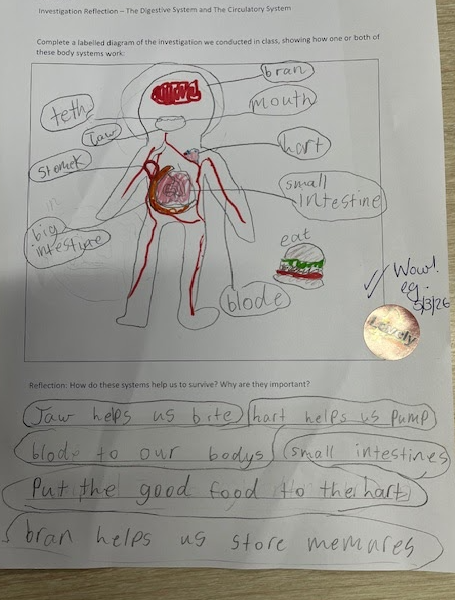 Investigation Reflection – The Digestive System and The Circulatory System
Complete a labelled diagram of the investigation we conducted in class, showing how one or both of
these body systems work:
bran
teth
mouth
Jaw
hart
stomek
small
intestine
big
intestine
eat
blode
Wow!
eg.
5/3/26
Lovely
Reflection: How do these systems help us to survive? Why are they important?
Jaw helps us bite hart helps us pump
blode to our bodys small intestines
Put the good food to the hart
bran helps us store memares